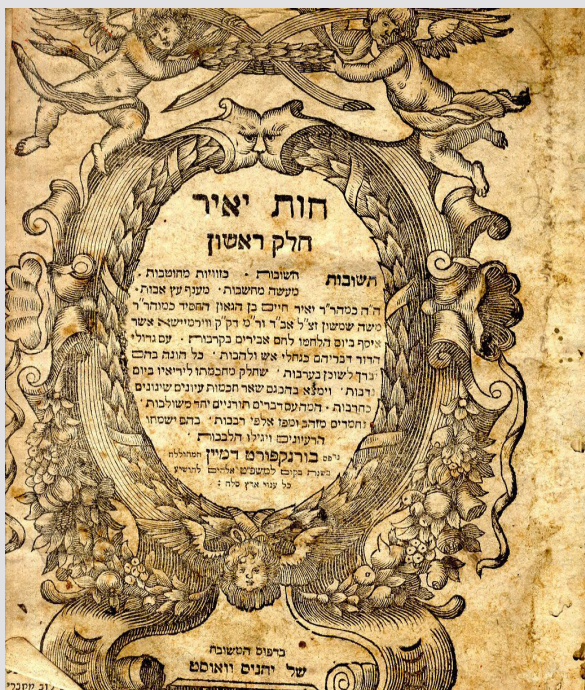 חות יאיר
חלק ראשון
תשובות חשובות · כזוויות מחוטבות ·
מעשה מחשבות · מענף עץ אבות ·
ה"ה כמהר"ר יאיר חיים בן הגאון החסיד כמוהר"ר
משה שמשון זצ"ל אב"ד ור"מ דק"ק ווירמיישא אשר
איסף ביום הלחמו לחם אבירים בקרבות · עם גדולי
הדור דבריהם כגחלי אש ולהבות · כל הוגה בהם
יברך לשוכן בערבות · שחלק מחכמתו ליריאיו ביום
נדבות · וימצא בהכנם שאר חכמות עיונים שינונים
כחרבות · המה עם דברים תורניים יחד משולבות ·
נחמדים מזהב ומפז אלפי רבבות · בהם ישמחו
הרעיונים ויגילו הלבבות ·
נדפס בורנקפורט דמיין המהוללה
בשנת בקום למשפט אלהים להושיע
כל ענוי ארץ סלה :
ברפוס המשובח
של יהניס וואוסט